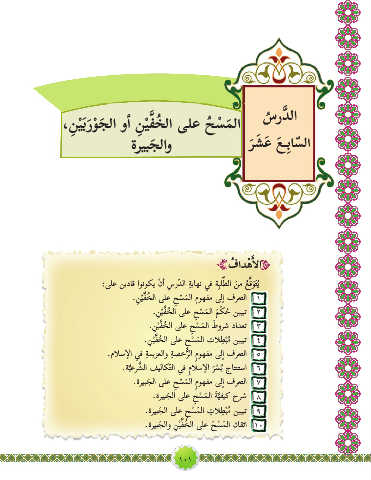 الدَّرسُ
السّابِعَ عَشَرَ
المَسْحُ على الخُفَّيْنِ أو الجَوْرَبَيْنِ،
والجَبيرة
الأَهْدافُ
يُتَوَقَّعُ مِنَ الطَّلَبةِ في نهايةِ الدَّرسِ أنْ يكونوا قادرين على:
١ التعرف إلى مفهومِ المَسْحِ على الخُفَّيْنِ.
٢ تبيين حُكْمِ المَسْحِ على الخُفَّيْنِ.
٣ تعداد شروطِ المَسْحِ على الخُفَّيْنِ.
٤ تبيين مُبْطِلاتِ المَسْحِ على الخُفَّيْنِ.
٥ التعرف إلى مفهومِ الرُّخصةِ والعزيمةِ في الإسلام.
٦ استنتاج يُسْرَ الإسلامِ في التَّكاليفِ الشَّرعيَّة.
٧ التعرف إلى مفهومِ المَسْحِ على الجَبيرة.
٨ شرح كيفيَّة المَسْحِ على الجَبيرة.
٩ تبيين مُبْطِلاتِ المَسْحِ على الجَبيرة.
١٠ اتقان المَسْحَ على الخُفَّيْنِ والجَبيرة.
١٠١